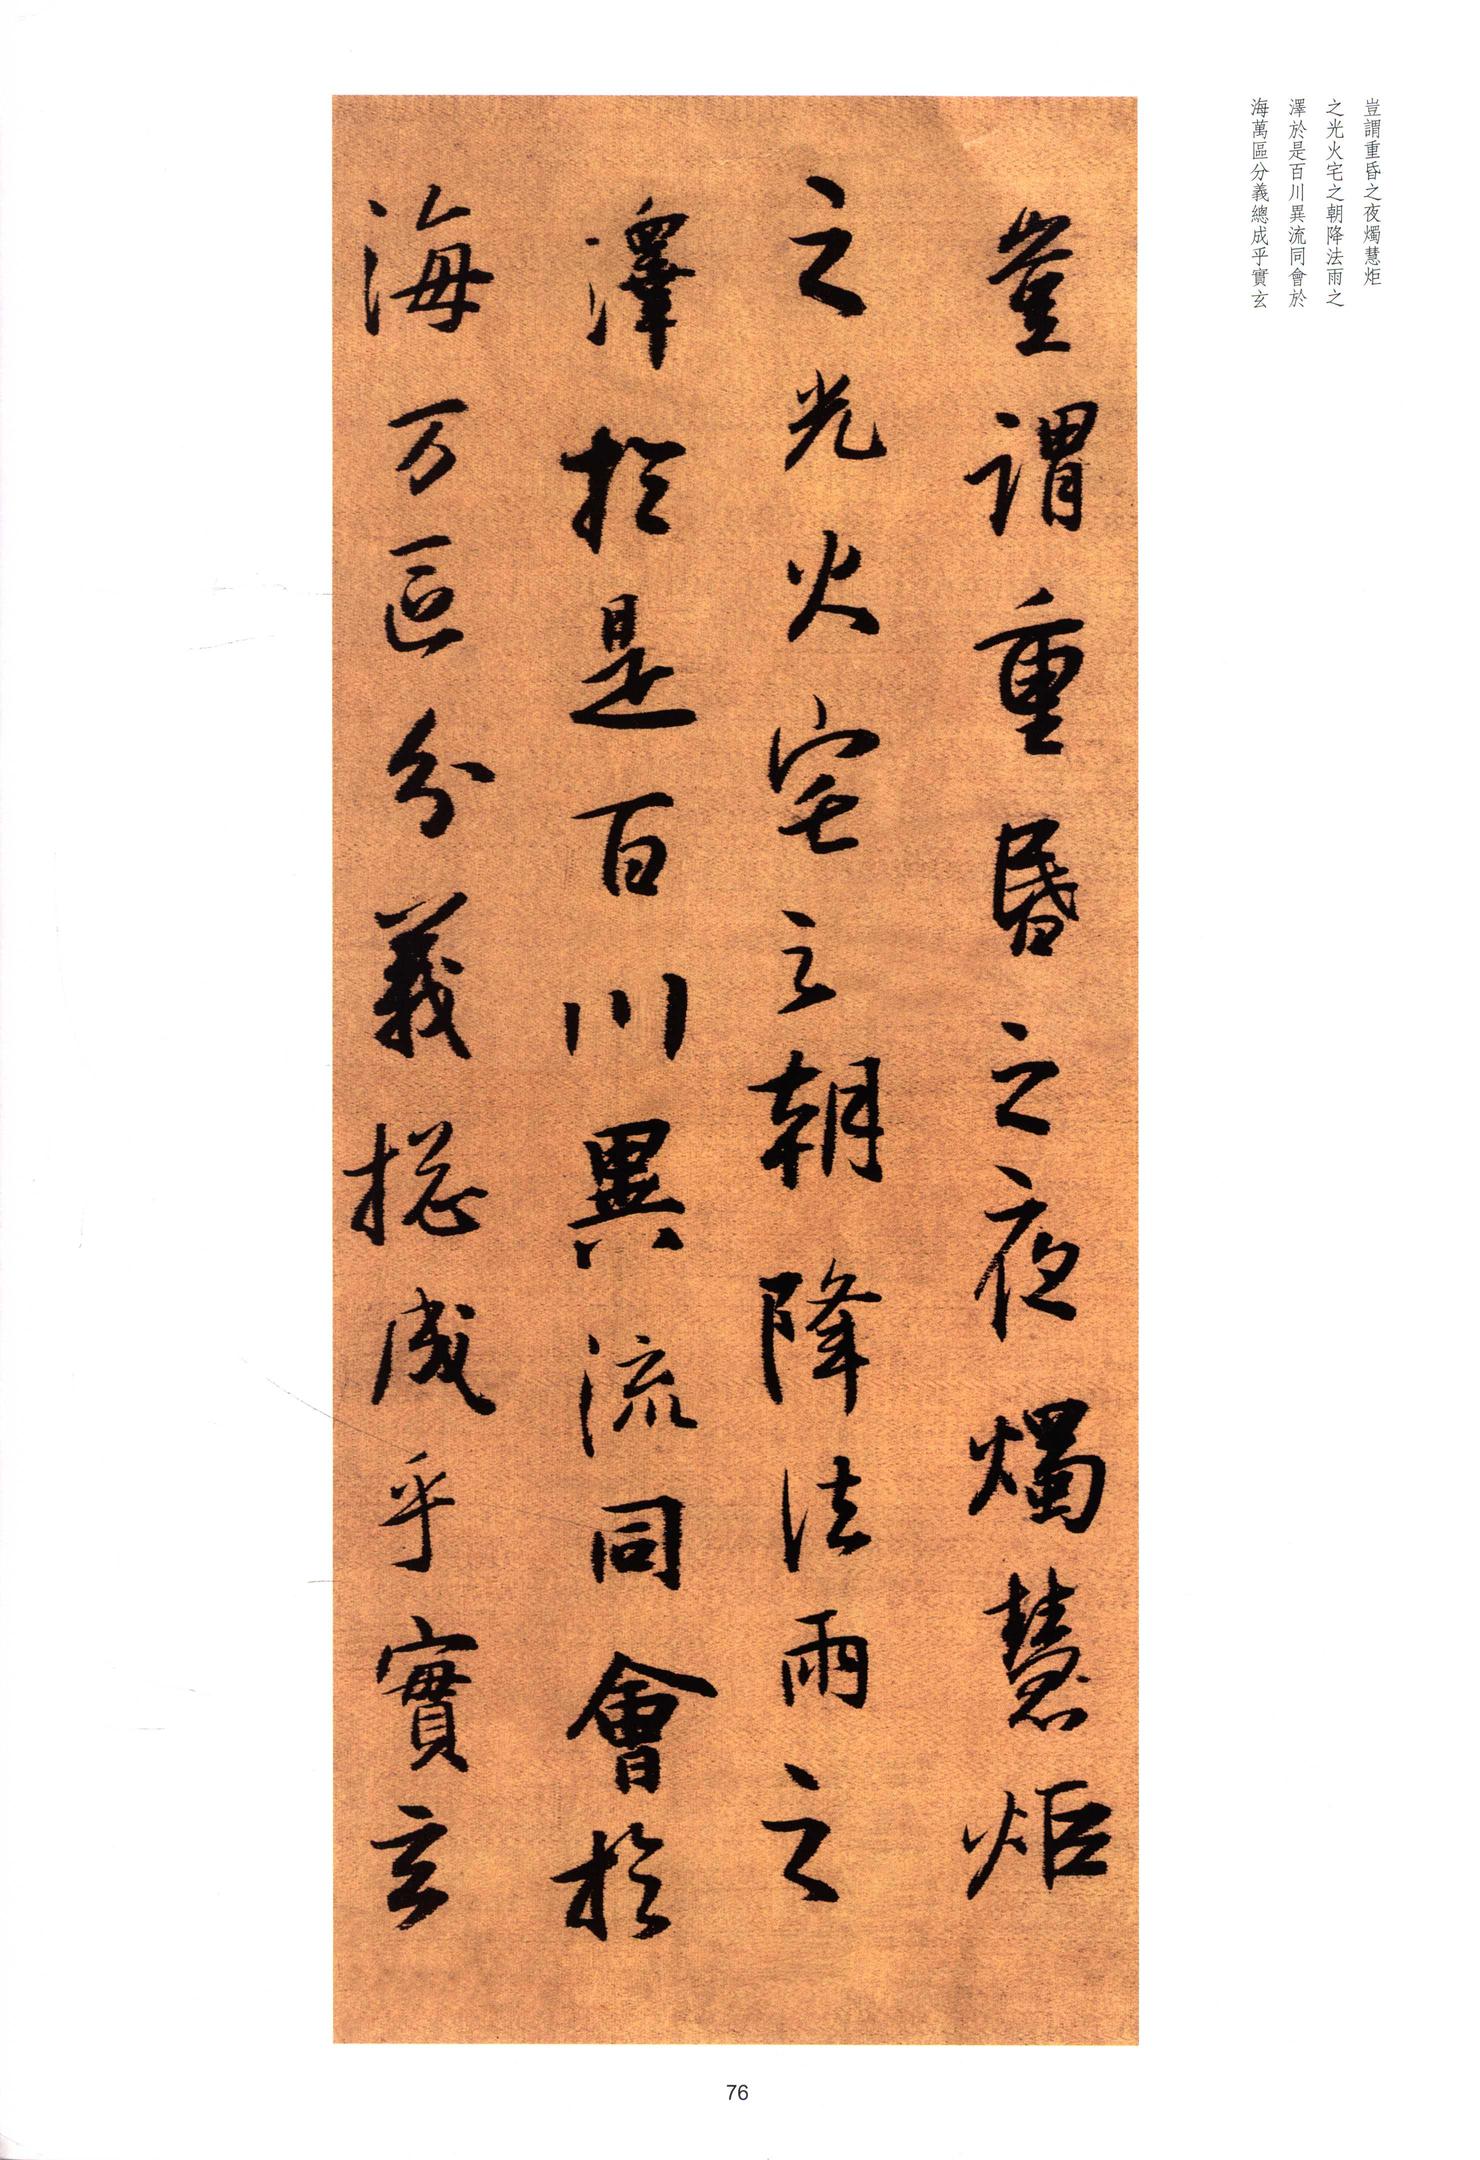 豈謂重昏之夜燭慧炬
之光火宅之朝降法雨之
澤於是百川異流同會於
海萬區分義總成乎實玄
豈謂重昏之夜燭慧炬
之光火宅之朝降法雨之
澤於是百川異流同會於
海万區分義揔成乎實玄
76